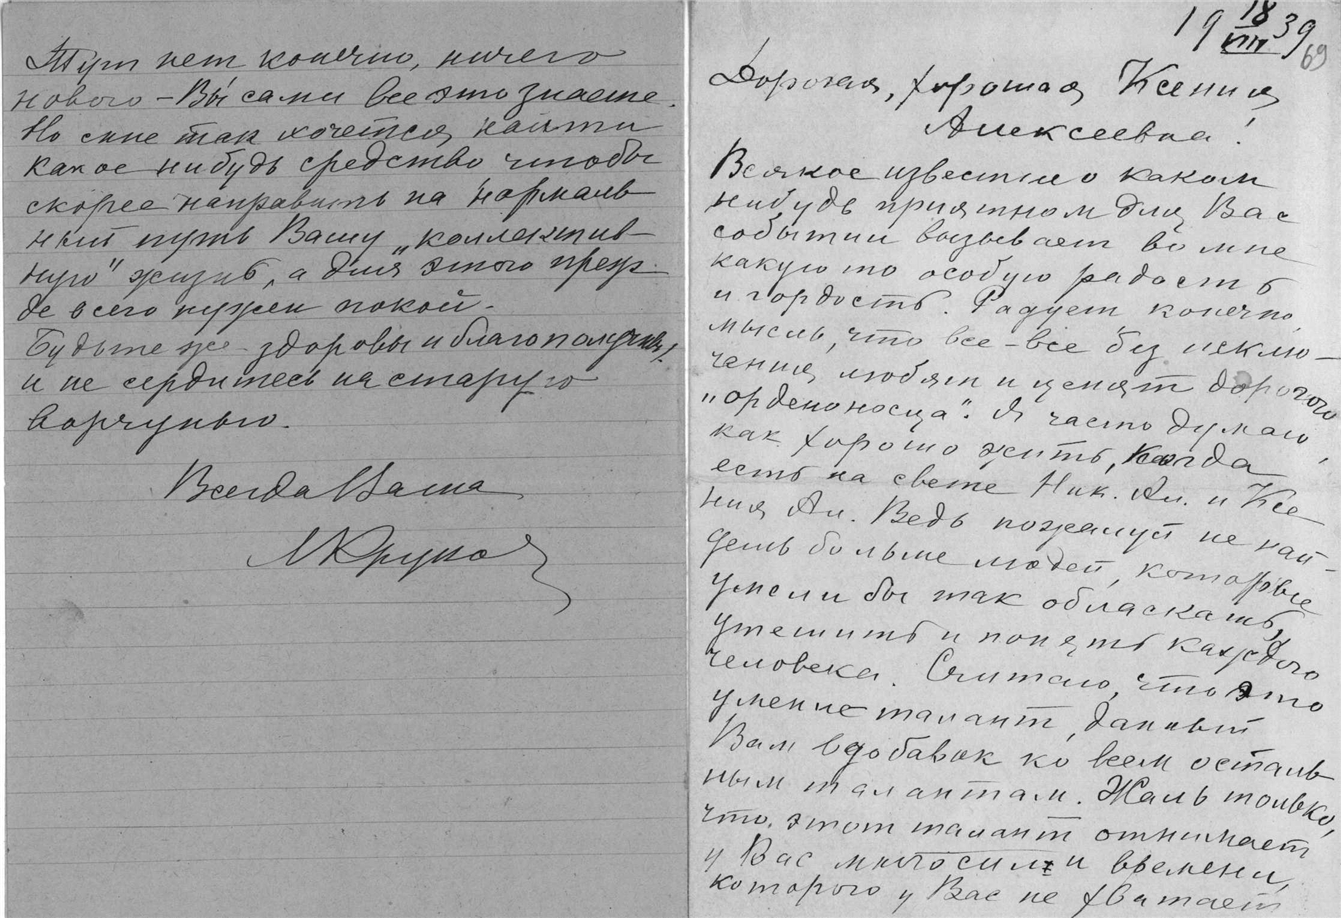 Тут нет конечно, ничего
нового – Вы сами все это знаете.
Но мне так хочется найти
какое нибудь средство чтобы
скорее направить на нормаль-
ный путь Вашу „коллектив-
ную" жизнь, а для этого преж-
де всего нужен покой.
Будьте же здоровы и благополучны!
и не сердитесь на старую
ворчунью.
Всегда Ваша
МКрупо
19 18/VIII 39
69
Дорогая, хорошая Ксения
Алексеевна!
Всякое известие о каком
нибудь приятном для Вас
событии вызывает во мне
какую то особую радость
и гордость. Радует конечно,
мысль, что все-все без исклю-
чения, любят и ценят дорогого
„орденоносца". Я часто думаю,
как хорошо жить, когда
есть на свете Ник. Ал. и Ксе
ния Ал. Ведь пожалуй не най-
дешь больше людей, которые
умели бы так обласкать,
утешить и понять каждого
человека. Считаю, что это
умение талант, данный
Вам вдобавок ко всем осталь
ным талантам. Жаль только,
что этот талант отнимает
у Вас много сил и времени,
которого у Вас не хватает